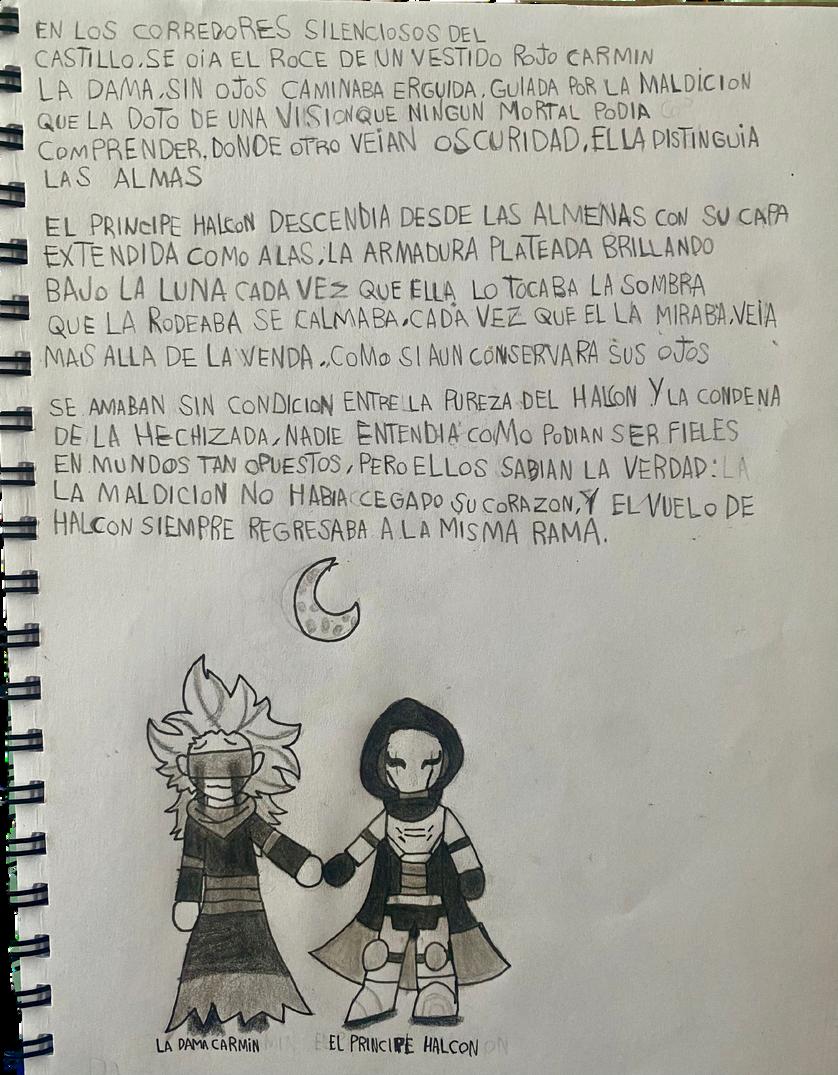 EN LOS CORREDORES SILENCIOSOS DEL
CASTILLO, SE OIA EL ROCE DE UN VESTIDO ROJO CARMIN
LA DAMA, SIN OJOS CAMINABA ERGUIDA, GUIADA POR LA MALDICION
QUE LA DOTO DE UNA VISION QUE NINGUN MORTAL PODIA
COMPRENDER, DONDE OTRO VEIAN OSCURIDAD, ELLA DISTINGUIA
LAS ALMAS
EL PRINCIPE HALCON DESCENDIA DESDE LAS ALMENAS CON SU CAPA
EXTENDIDA COMO ALAS, LA ARMADURA PLATEADA BRILLANDO
BAJO LA LUNA CADA VEZ QUE ELLA LO TOCABA LA SOMBRA
QUE LA RODEABA SE CALMABA, CADA VEZ QUE EL LA MIRABA, VEIA
MAS ALLA DE LA VENDA, COMO SI AUN CONSERVARA SUS OJOS
SE AMABAN SIN CONDICION ENTRE LA PUREZA DEL HALCON Y LA CONDENA
DE LA HECHIZADA, NADIE ENTENDIA COMO PODIAN SER FIELES
EN MUNDOS TAN OPUESTOS, PERO ELLOS SABIAN LA VERDAD: LA
LA MALDICION NO HABIA CEGADO SU CORAZON, Y EL VUELO DE
HALCON SIEMPRE REGRESABA A LA MISMA RAMA.
LA DAMA CARMIN EL PRINCIPE HALCON